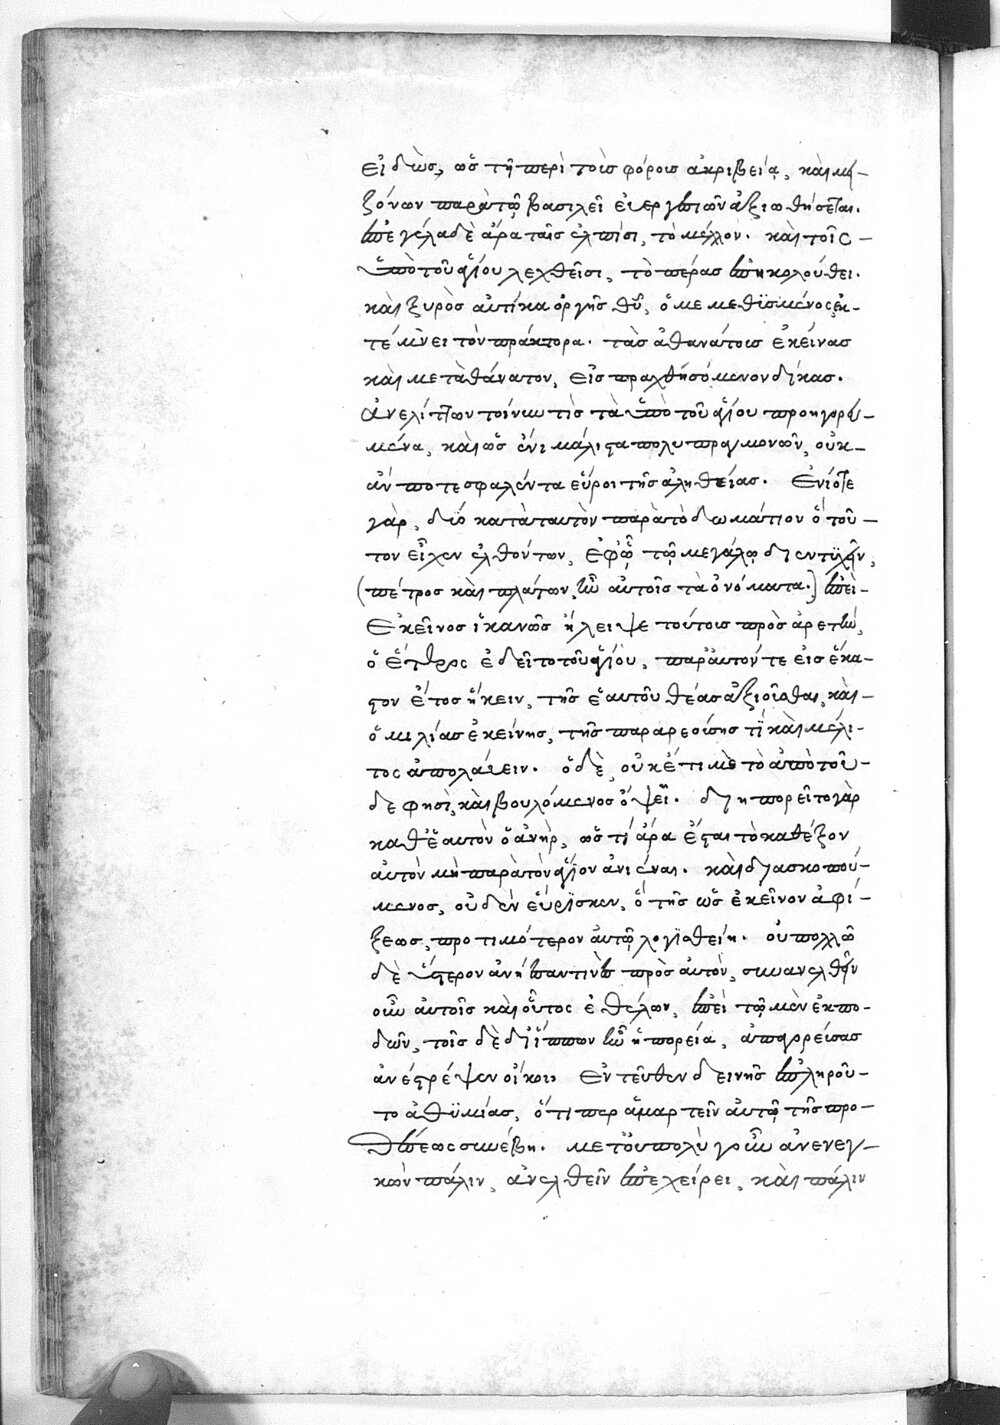 εἰδὼς, ὡς τῇ περὶ τοὺς φόρους ἀκριβείᾳ, καὶ μει-
ζόνων παρὰ τῷ βασιλεῖ εὐεργεσιῶν ἀξιωθήσεται.
ἐπεγέλα δὲ ἄρα ταῖς ἐλπίσι, τὸ μέλλον. καὶ τοῖς
ὑπὸ τοῦ ἁγίου λεχθεῖσι, τὸ πέρας ἐπηκολούθει.
καὶ ξυρὸς αὐτίκα ὀργῆς θῦ, ὁ μεμεθυσμένος ἐκ-
τέμνει τὸν πράκτορα. τὰς ἀθανάτους ἐκείνας
καὶ μετὰ θάνατον, εἰσπραχθησόμενον δίκας.
Ἀνελίττων τοίνυν τὶς τὰ ὑπὸ τοῦ ἁγίου προηγορευ-
μένα, καὶ ὡς ἔνι μάλιστα πολυπραγμονῶν, οὐκ
ἄν ποτε σφαλέντα εὕροι τῆς ἀληθείας. Ἐνίοτε
γὰρ, δύο κατὰ ταυτὸν παρὰ τὸ δωμάτιον ὃ τοῦ-
τον εἶχεν ἐλθόντων, ἐφ' ᾧ τῷ μεγάλῳ διεντυχεῖν,
(πέτρος καὶ πλάτων ἦν αὐτοῖς τὰ ὀνόματα.) ἐπεὶ
ἐκεῖνος ἱκανῶς ἤλειψε τούτους πρὸς ἀρετὴν,
ὁ ἕτερος ἐδεῖτο τοῦ ἁγίου, παρ' αὐτόν τε εἰς ἕκα-
στον ἔτος ἥκειν, τῆς ἑαυτοῦ θέας ἀξιοῦσθαι, καὶ
ὁμιλίας ἐκείνης, τῆς παραρεούσης τι καὶ μέλι-
τος ἀπολαύειν. ὁ δὲ, οὐκέτι με τὸ ἀπὸ τοῦ-
δε φησὶ, καὶ βουλόμενος ὄψει. διηπορεῖτο γὰρ
καθ' ἑαυτὸν ὁ ἀνὴρ, ὡς τί ἄρα ἔσται τὸ καθέξον
αὐτὸν μὴ παρὰ τὸν ἅγιον ἀνιέναι. καὶ διασκοπού-
μενος, οὐδὲν εὕρισκεν, ὃ τῆς ὡς ἐκεῖνον ἀφί-
ξεως, προτιμότερον αὐτῷ λογισθείη. οὐ πολλῷ
δὲ ὕστερον πρὸς αὐτὸν, συνανελθεῖν
οὖν αὐτοῖς καὶ οὗτος ἐθέλων, ἐπεὶ τῷ μὲν ἐκ πο-
δῶν, τοῖς δὲ δι' ἵππων ἦν ἡ πορεία, ἀπαγορεύσας
ἀνέστρέψεν οἴκοι. Ἐντεῦθεν δεινῆς ἐπληροῦ-
το ἀθυμίας, ὅτιπερ ἁμαρτεῖν αὐτῷ τῆς προ-
θέσεως συνέβη. μετ' οὐ πολὺ γοῦν ἀνενεγ-
κὼν πάλιν, ἀνελθεῖν ἐπεχείρει, καὶ πάλιν